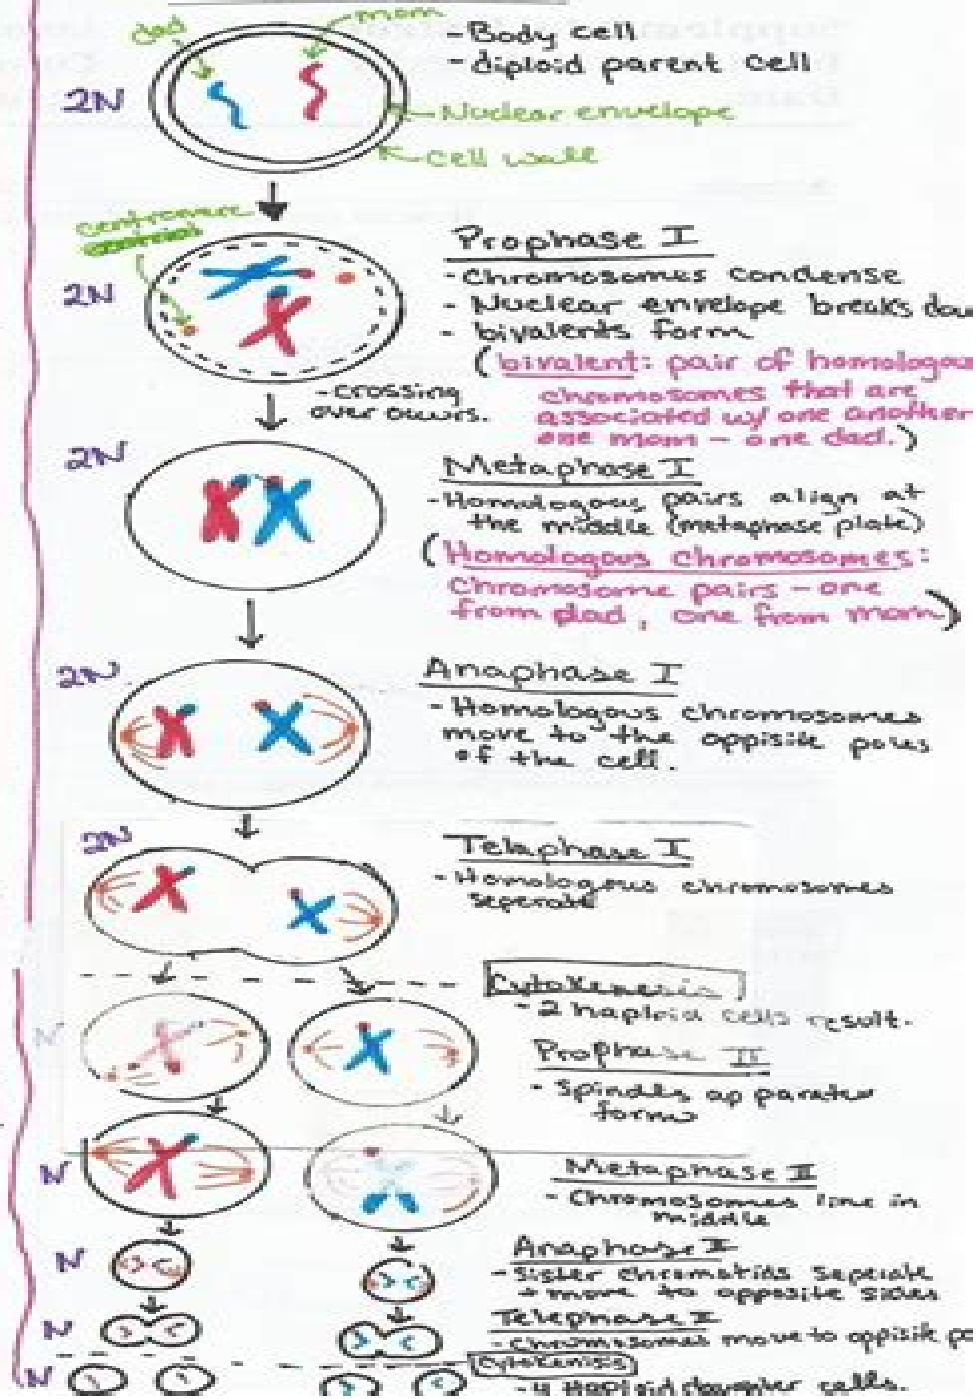 dad
mom
- Body cell
- diploid parent cell
2N
Nuclear envelope
Cell wall
centromere
Prophase I
2N
- Chromosomes condense
- Nuclear envelope breaks dow
- bivalents form
(bivalent: pair of homologou
chromosomes that are
associated w/ one another
one mom - one dad.)
- crossing
over occurs.
2N
Metaphase I
- Homologous pairs align at
the middle (metaphase plate)
(Homologous chromosomes:
chromosome pairs - one
from dad, one from mom)
2N
Anaphase I
- Homologous chromosomes
move to the oppisite poles
of the cell.
2N
Telaphase I
- Homologous chromosomes
seperate
Cytokenesis
- 2 haploid cells result.
N
Prophase II
- Spindles
form
N
Metaphase II
- Chromosomes line in
middle
N
Anaphase II
- Sister chromatids seperate
+ move to opposite sides
N
Telephase II
- chromosomes move to oppisite po
Cytokenisis
N
- 4 Haploid daughter cells.